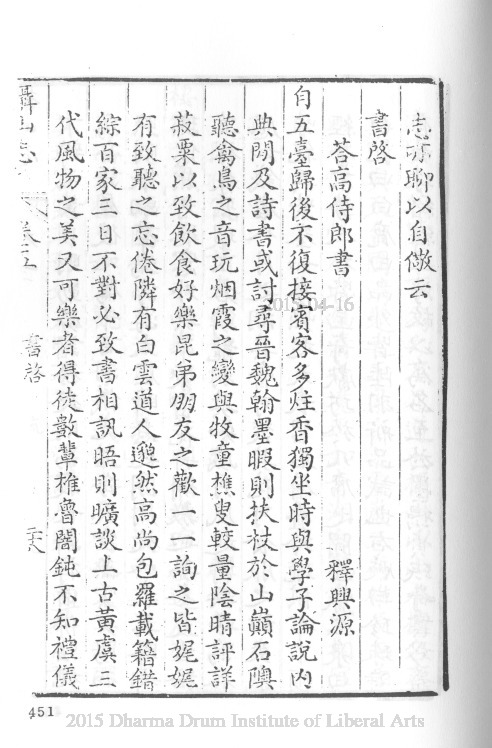 志亦聊以自儆云
書啓
荅高侍郎書 釋興源
自五臺歸後不復接賓客多炷香獨坐時與學子論說内
典閒及詩書或討尋晉魏翰墨暇則扶杖於山巔石隩
聽禽鳥之音玩烟霞之變與牧童樵叟較量陰晴評詳
菽粟以致飲食好樂昆弟朋友之歡一一詢之皆娓娓
有致聽之忘倦隣有白雲道人邈然高尚包羅載籍錯
綜百家三日不對必致書相訊晤則曠談上古黃虞三
代風物之美又可樂者得徒數輩椎魯闇鈍不知禮儀
山志 卷五 書啓
451
2015-04-16
2015 Dharma Drum Institute of Liberal Arts